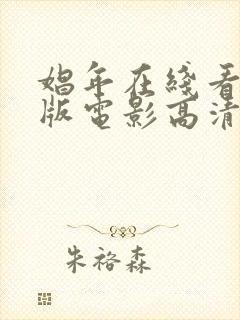 娼年在线看
版電影高清
朱裕森